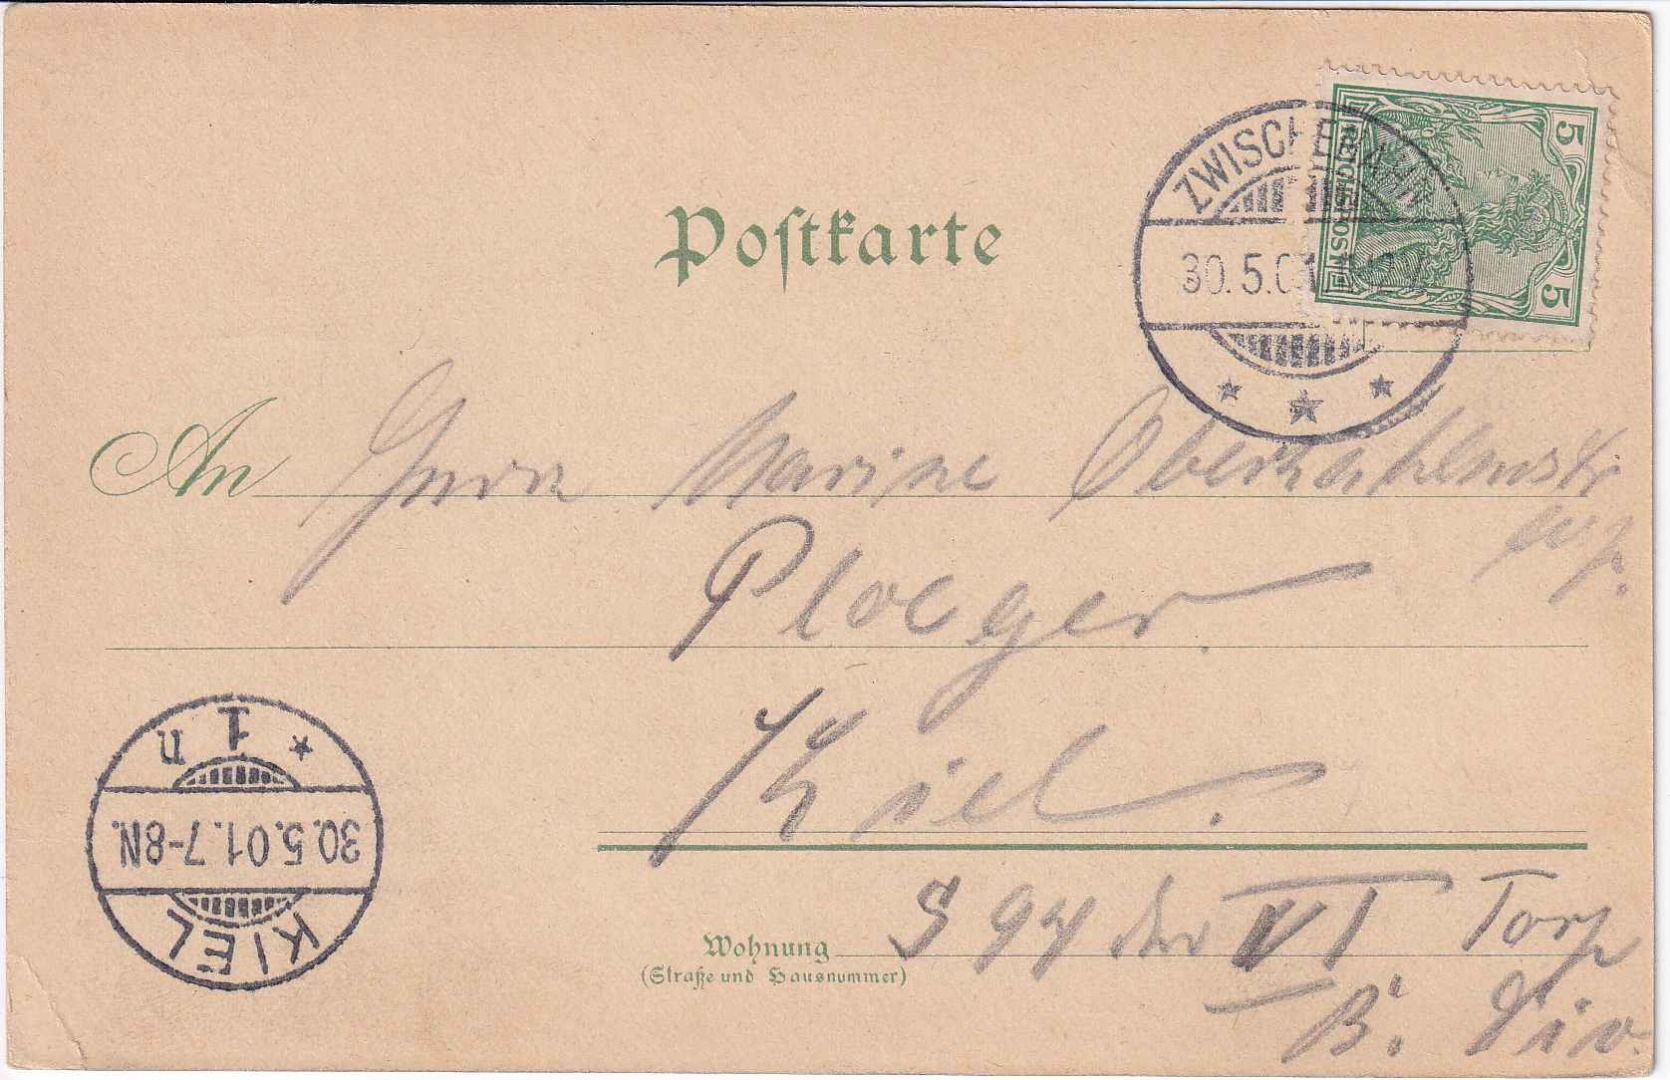 Postkarte
ZWISCHENAHN
30.5.01
REICHSPOST
5
5
An Herrn Marine Oberzahlmstr
Ploeger.
Kiel.
Wohnung
(Straße und Hausnummer)
S 94 der VI Torp
B. Div.
* 1 n
30.5.01.7-8N.
KIEL